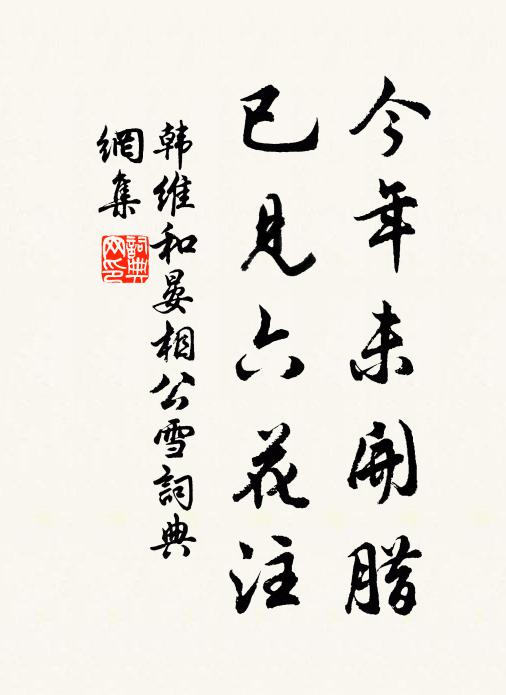 今年未開腊
已見六花注
韩维和晏相公雪詞典
網集
詞典網印